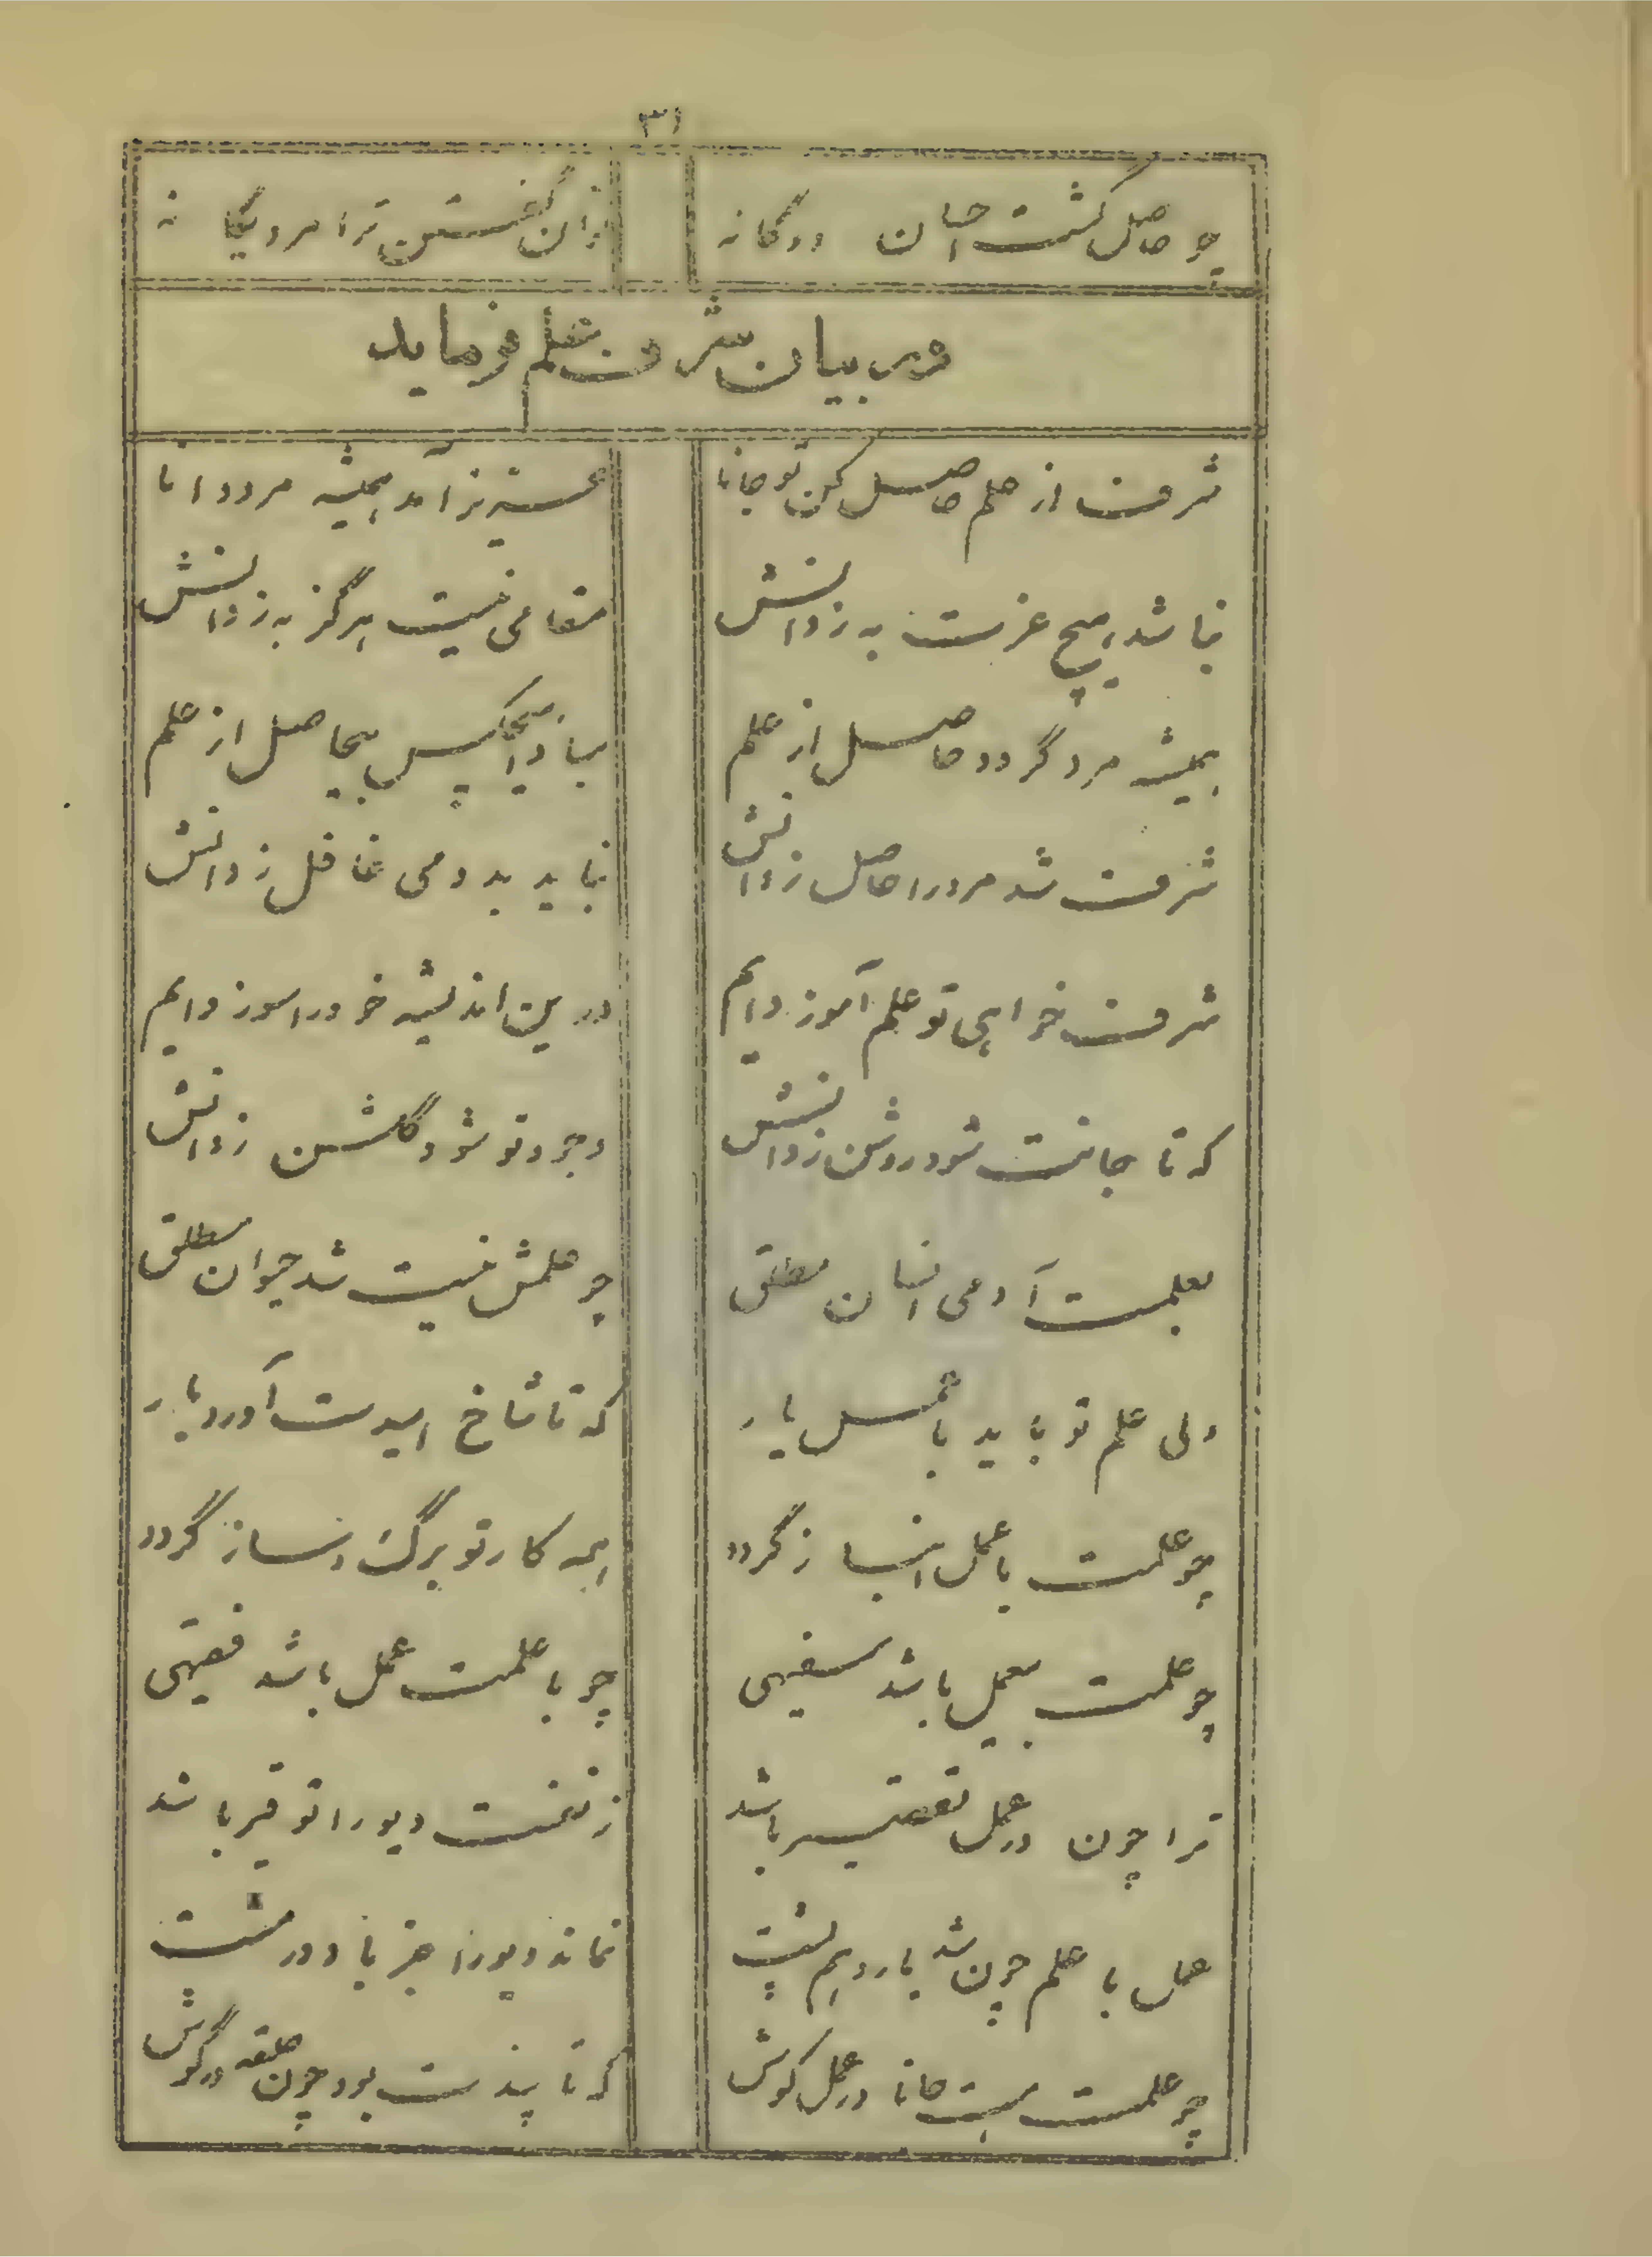 ۳۱
چو حاصل گشت احسان دوگانه
توان گفتن ترا مرد یگانه
در بیان شرف علم فرماید
شرف از علم حاصل کن تو جانا
عزیز آمد همیشه مرد دانا
نباشد هیچ عزت به ز دانش
مقامی نیست هرگز به ز دانش
همیشه مرد گردد حاصل از علم
مبادا هیچکس بیحاصل از علم
شرف شد مرد را حاصل ز دانش
نباید بد دمی غافل ز دانش
شرف خواهی تو علم آموز دایم
درین اندیشه خود را سوز دایم
که تا جانت شود روشن ز دانش
وجود تو شود گلشن ز دانش
بعلمست آدمی انسان مطلق
چو علمش نیست شد حیوان مطلق
ولی علم تو باید با عمل یار
که تا شاخ امیدت آورد بار
چو علمت با عمل انباز گردد
همه کار تو برگ و ساز گردد
چو علمت بیعمل باشد سفیهی
چو با علمت عمل باشد فقیهی
ترا چون در عمل تقصیر باشد
ز نعمت دیو را توفیر باشد
عمل با علم چون شد یار و هم پشت
نماند دیو را جز باد در مشت
چو علمت هست جانا در عمل کوش
که تا پندت بود چون حلقه در گوش